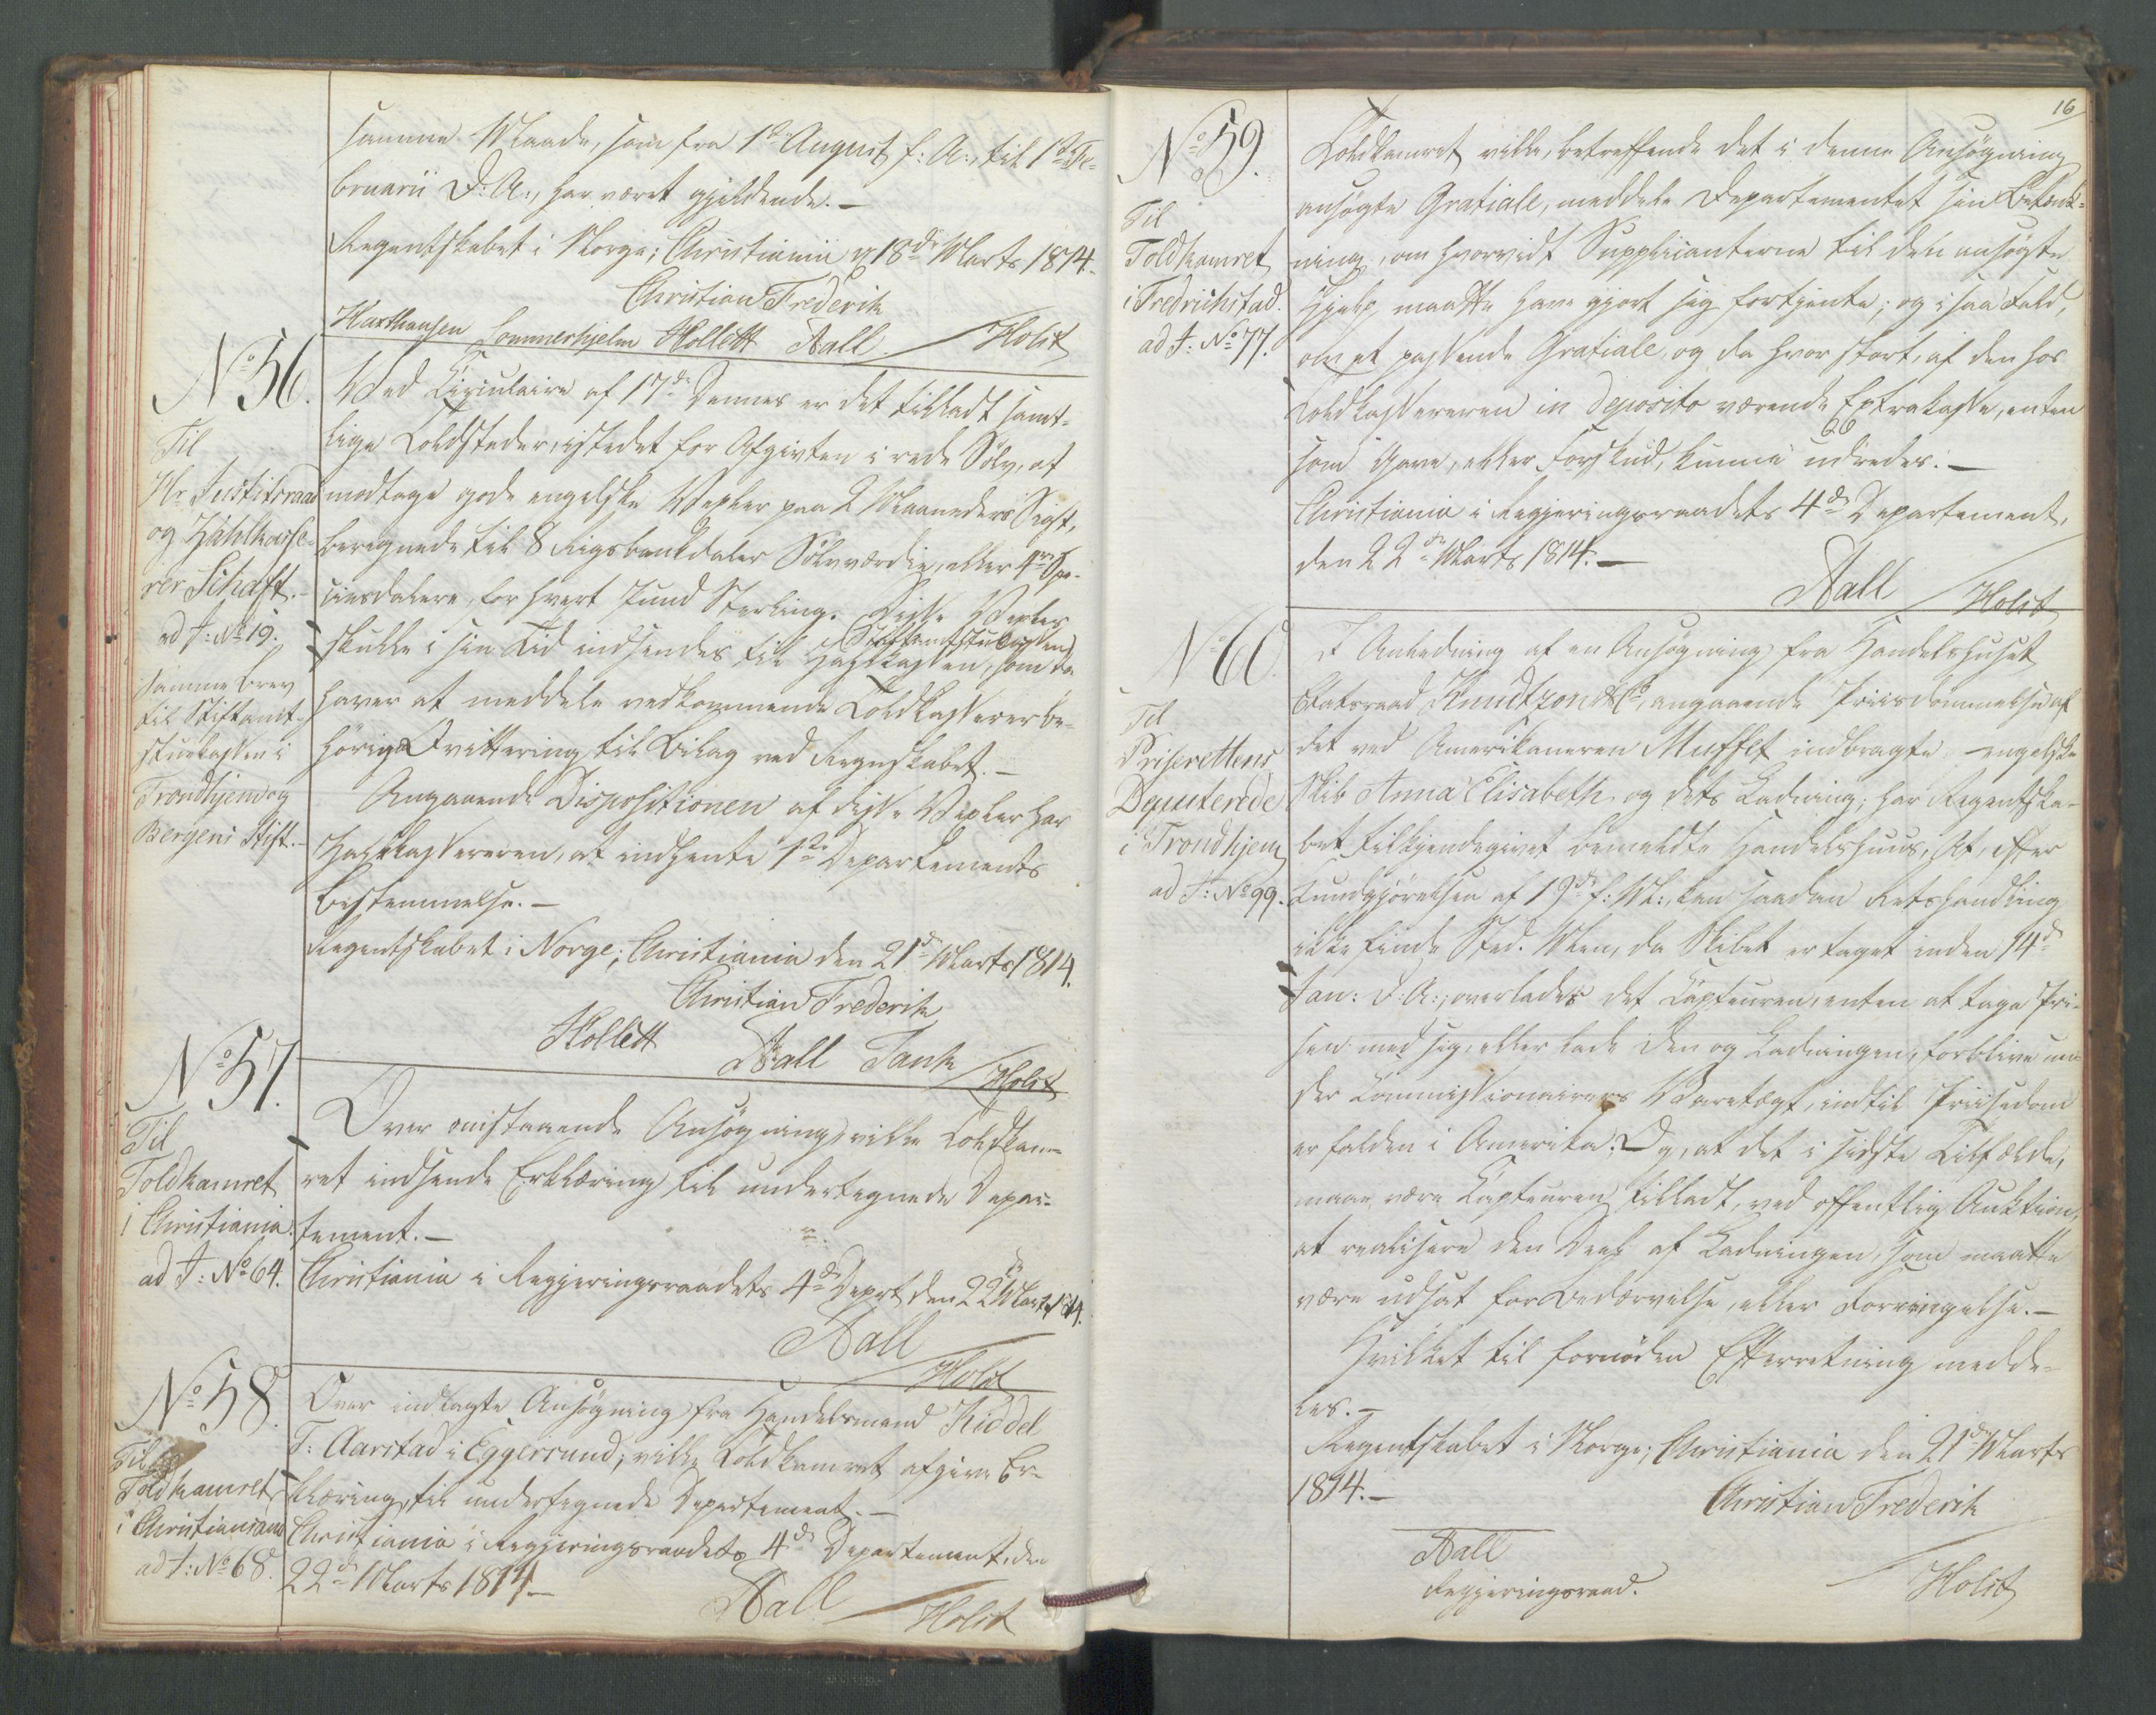 samme Maade, som fra 1ste August f: A:, til 1ste Fe-
bruarii D: A:, har været gjældende. —
Regentskabet i Norge; Christiania d. 18de Marts 1814.
Christian Frederik
Haxthausen Sommerhjelm Kollett Aall. / Holst
No 56.
Til
Hr. Justitsraad
og Zahlkasse-
rer Schaft. -
ad J: No 19.
samme Brev
til Stiftamt-
stuekassen i
Trondhjem og
Bergens Stift. -
Ved Circulaire af 17de Dennes er det tilladt samt-
lige Toldsteder, istedet for Afgivten i rede Sølv, at
modtage gode engelske Vexler paa 2 Maaneders Sigt,
beregnede til 8 Rigsbankdaler Sølvværdie, eller 4re Spe-
ciesdalere, for hvert Pund Sterling. Disse Vexler
skulle i sin Tid indsendes til Zahlkassen, (Stiftamtstuekassen) som da
haver at meddele vedkommende Toldkasserer be-
hørig Qvittering til Bilag ved Regnskabet. —
Angaaende Dispositionen af disse Vexler har
Zahlkassereren, at indhente 1ste Departements
Bestemmelse. —
Regentskabet i Norge; Christiania den 21de Marts 1814.
Christian Frederik
Kollett Aall Tank / Holst
No 57.
Til
Toldkamret
i Christiania.
ad J: No 64.
Over omstaaende Ansøgning ville Toldkam-
ret indsende Erklæring til undertegnede Depar-
tement. —
Christiania i Regjeringsraadets 4de Depart. den 22de Marts 1814.
Aall
/ Holst
No 58.
Til
Toldkamret
i Christiansand
ad J: No 68.
Over indlagte Ansøgning fra Handelsmand Kiddel
T: Aarstad i Eggersund, ville Toldkamret afgive Er-
klæring til undertegnede Departement. —
Christiania i Regjeringsraadets 4de Departement, den
22de Marts 1814 —
Aall / Holst
16
No 59.
Til
Toldkamret
i Fredrichstad.
ad J: No 77.
Toldkamret ville, betreffende det i denne Ansøgning
ansøgte Gratiale, meddele Departementet sin Betænk-
ning, om hvorvidt Supplicanterne til den ansøgte
Hjelp maatte have gjort sig fortjente; og i saa Fald,
om et passende Gratiale, og da hvor stort, af den hos
Toldkassereren in Deposito værende Extrakasse, enten
som Gave, eller Forskud, kunne udredes. —
Christiania i Regjeringsraadets 4de Departement,
den 22de Marts 1814. —
Aall / Holst
No 60.
Til
Priserettens
Deputerede
i Trondhjem
ad J: No 99.
I Anledning af en Ansøgning fra Handelshuset
Etatsraad Knudtzon & Co, angaaende Priisdommelse af
det ved Amerikaneren Muffet indbragte engelske
Skib Anna Elisabeth og dets Ladning, har Regentska-
bet tilkjendegivet bemeldte Handelshuus, At, efter
Kundgjørelsen af 19de f: M:, kan saadan Retshandling
ikke finde Sted. Men, da Skibet er taget inden 14de
Jan: D: A:, overlades det Capteuren, enten at tage Pri-
sen med sig, eller lade den og Ladningen, forblive un-
der Commissionairers Varetægt, indtil Priisedom
er falden i Amerika. Og, at det i sidste Tilfælde,
maae være Capteuren tilladt, ved offentlig Auktion,
at realisere den Deel af Ladningen, som maatte
være udsat for Bedærvelse, eller Forringelse. —
Hvilket til fornøden Efterretning medde-
les. —
Regentskabet i Norge; Christiania den 21de Marts
1814. —
Christian Frederik
Aall
Regjeringsraad.
/ Holst